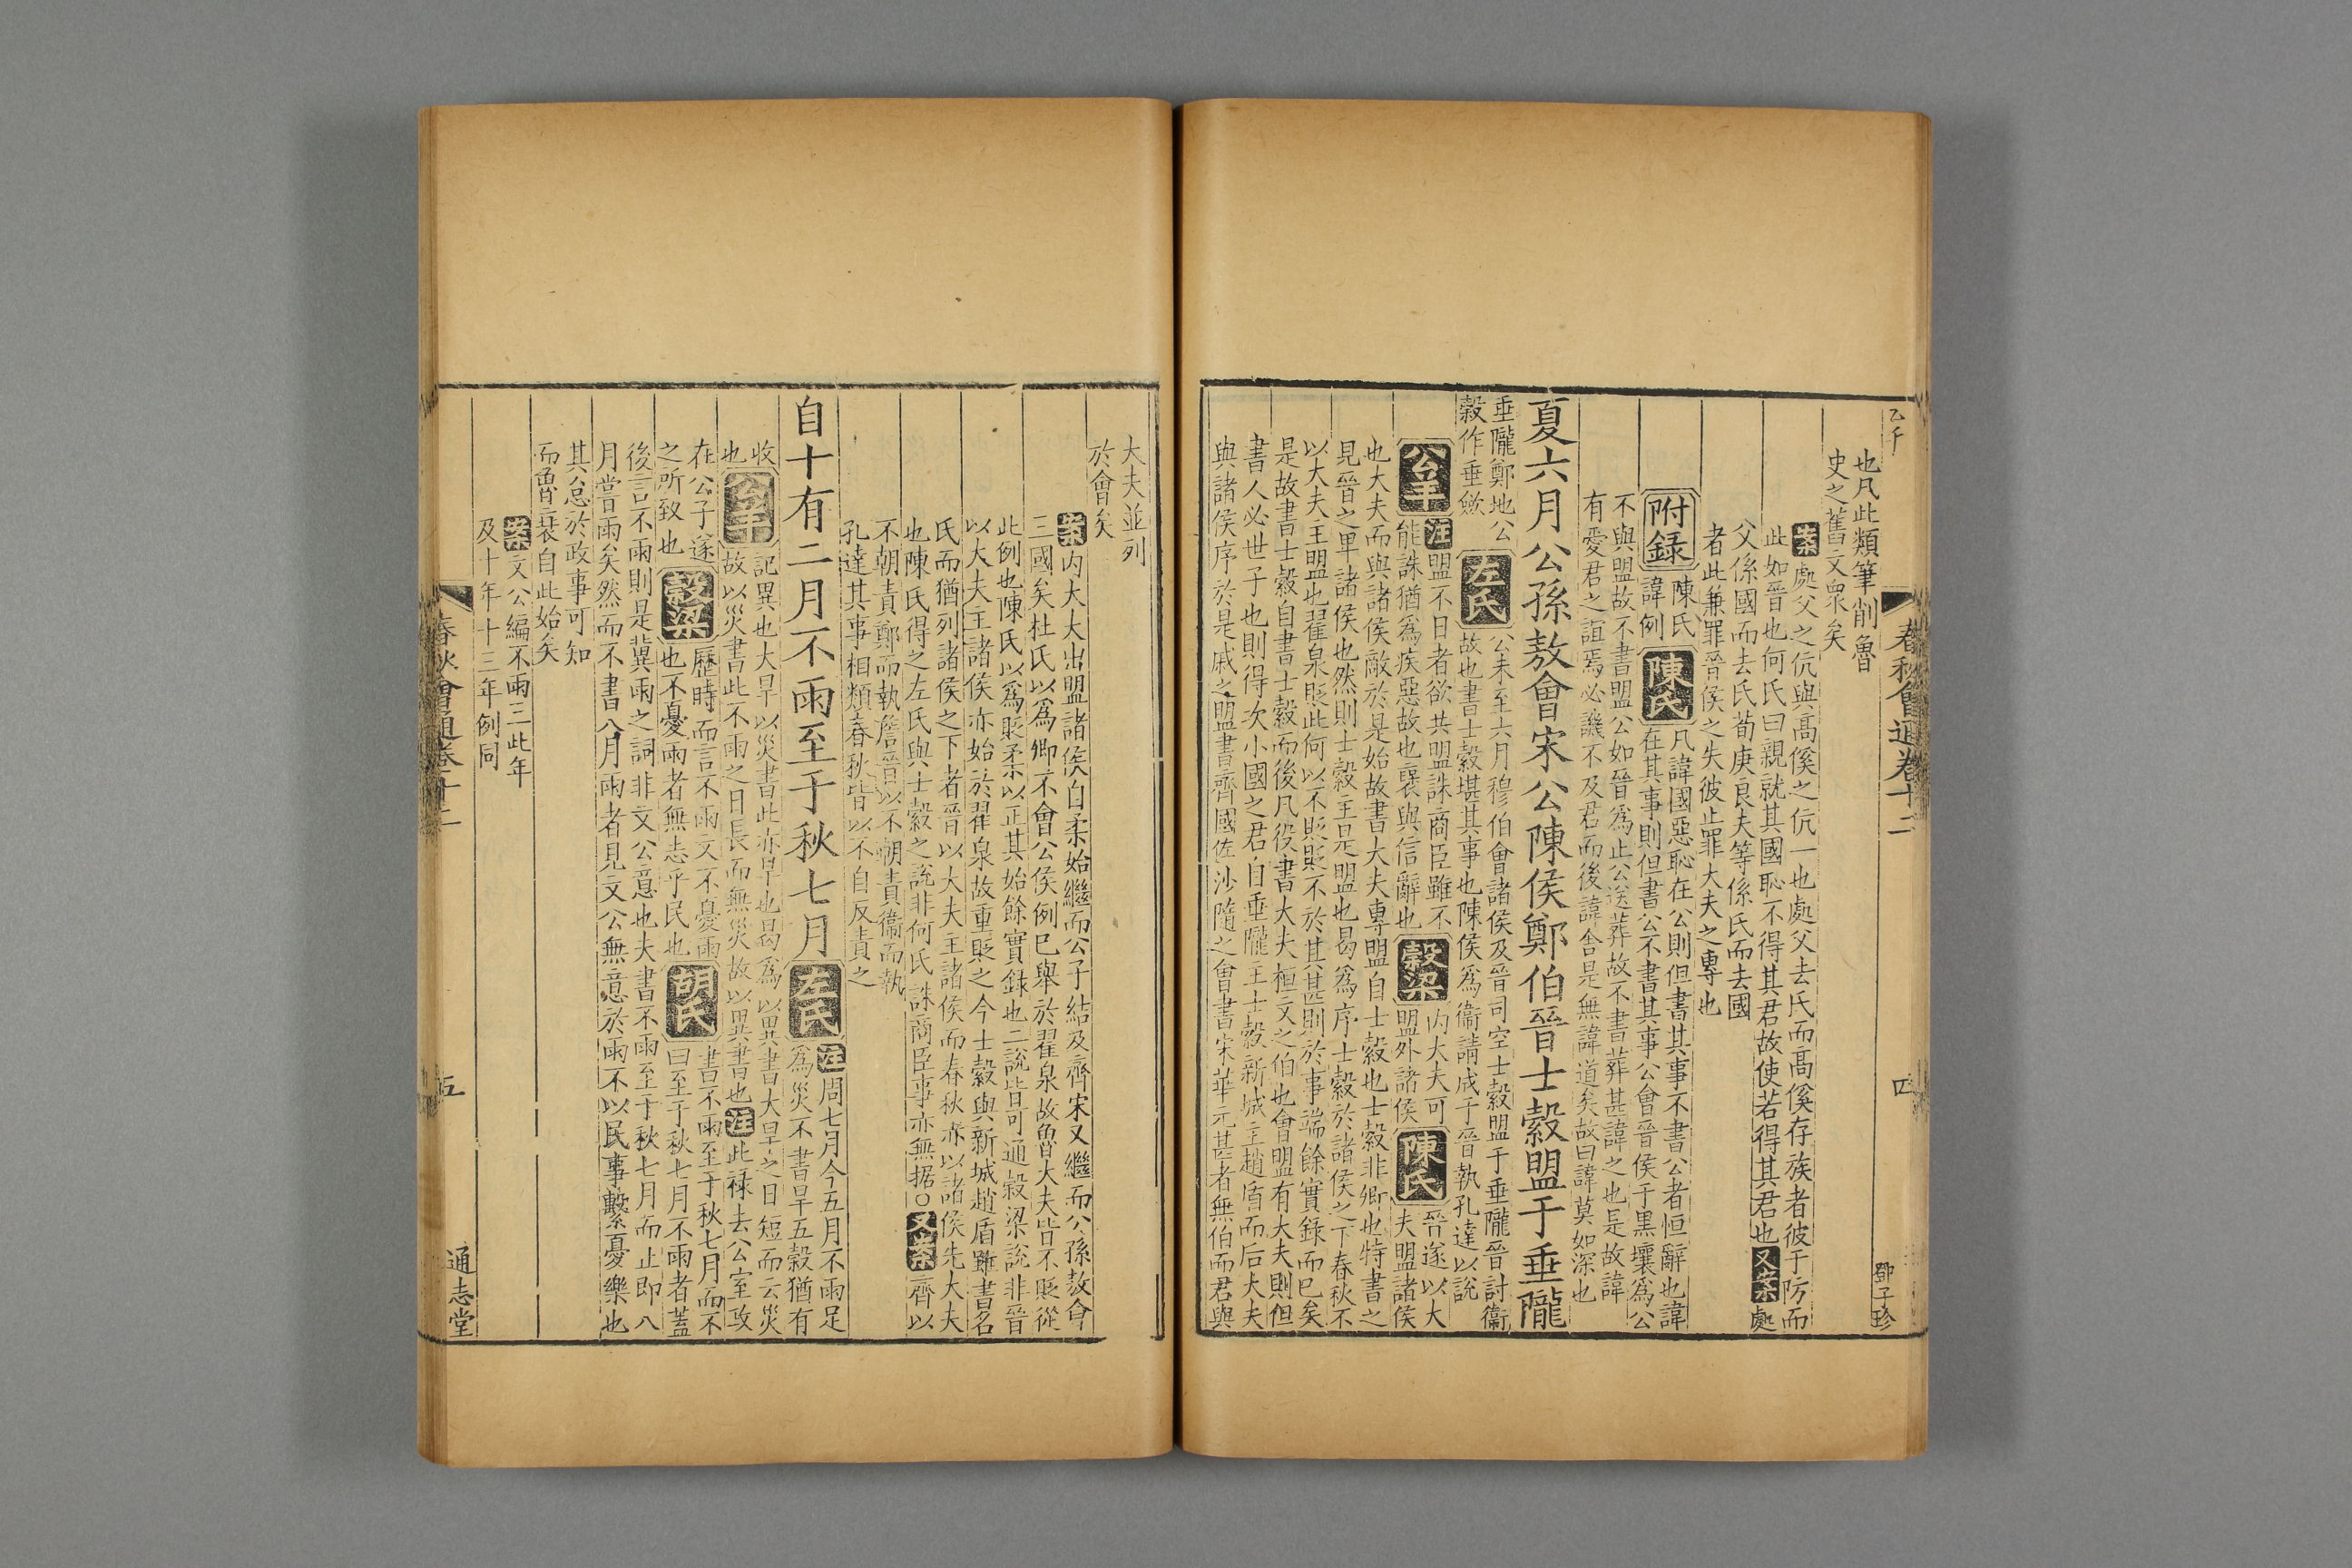 乙千
春秋會通卷十二
四
鄧子珍
也凡此類筆削魯
史之舊文衆矣
案處父之伉與高傒之伉一也處父去氏而高傒存族者彼于防而
此如晉也何氏曰親就其國恥不得其君故使若得其君也又案處
父係國而去氏荀庚良夫等係氏而去國
者此兼罪晉侯之失彼止罪大夫之專也
附錄
陳氏
諱例
陳氏
凡諱國惡恥在公則但書其事不書公者恒辭也諱
在其事則但書公不書其事公會晉侯于黑壤爲公
不與盟故不書盟公如晉爲止公送葬故不書葬甚諱之也是故諱
有愛君之誼焉必譏不及君而後諱舍是無諱道矣故曰諱莫如深也
夏六月公孫敖會宋公陳侯鄭伯晉士縠盟于垂隴
垂隴鄭地公
穀作垂斂
左氏
公未至六月穆伯會諸侯及晉司空士縠盟于垂隴晉討衞
故也書士縠堪其事也陳侯爲衞請成于晉執孔達以說
公羊
注盟不日者欲共盟誅商臣雖不
能誅猶爲疾惡故也襃與信辭也
穀梁
内大夫可
盟外諸侯
陳氏
晉遂以大
夫盟諸侯
也大夫而與諸侯敵於是始故書大夫專盟自士縠也士縠非卿也特書之
見晉之卑諸侯也然則士縠主是盟也曷爲序士縠於諸侯之下春秋不
以大夫主盟也翟泉貶此何以不貶貶不於其甚則於事端餘實錄而已矣
是故書士縠自書士縠而後凡役書大夫桓文之伯也會盟有大夫則但
書人必世子也則得次小國之君自垂隴主士縠新城主趙盾而后大夫
與諸侯序於是戚之盟書齊國佐沙隨之會書宋華元甚者無伯而君與
大夫並列
於會矣
案内大夫出盟諸侯自柔始繼而公子結及齊宋又繼而公孫敖會
三國矣杜氏以爲卿不會公侯例已舉於翟泉故魯大夫皆不貶從
此例也陳氏以爲貶柔以正其始餘實録也二說皆可通穀梁說非晉
以大夫主諸侯亦始於翟泉故重貶之今士縠與新城趙盾雖書名
氏而猶列諸侯之下者晉以大夫主諸侯而春秋亦以諸侯先大夫
也陳氏得之左氏與士縠之說非何氏誅商臣事亦無据○又案齊以
不朝責鄭而執詹晉以不朝責衞而執
孔達其事相類春秋皆以不自反責之
自十有二月不雨至于秋七月
左氏
注周七月今五月不雨足
爲災不書旱五穀猶有
收
也
公羊
記異也大旱以災書此亦旱也曷爲以異書大旱之日短而云災
故以災書此不雨之日長而無災故以異書也注此禄去公室政
在公子遂
之所致也
穀梁
歷時而言不雨文不憂雨
也不憂雨者無志乎民也
胡氏
書不雨至于秋七月而不
曰至于秋七月不雨者蓋
後言不雨則是冀雨之詞非文公意也夫書不雨至于秋七月而止即八
月嘗雨矣然而不書八月雨者見文公無意於雨不以民事繫憂樂也
其怠於政事可知
而魯衰自此始矣
案文公編不雨三此年
及十年十三年例同
春秋會通卷十二
五
通志堂